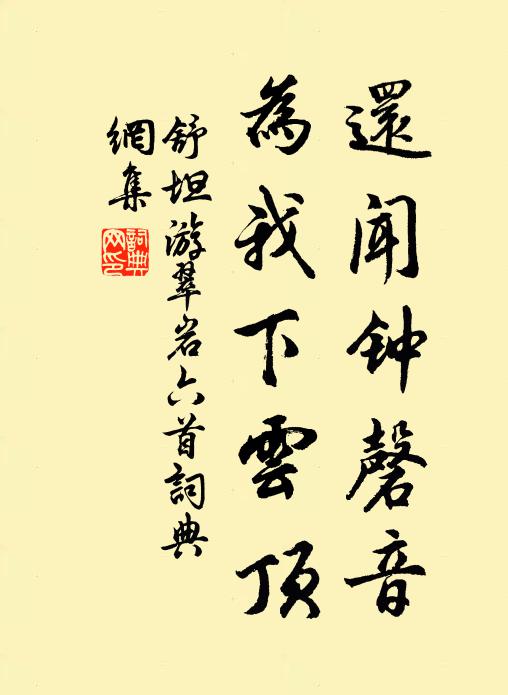 還闻钟磬音
為我下雲顶
舒坦游翠岩六首詞典
網集
詞典网印